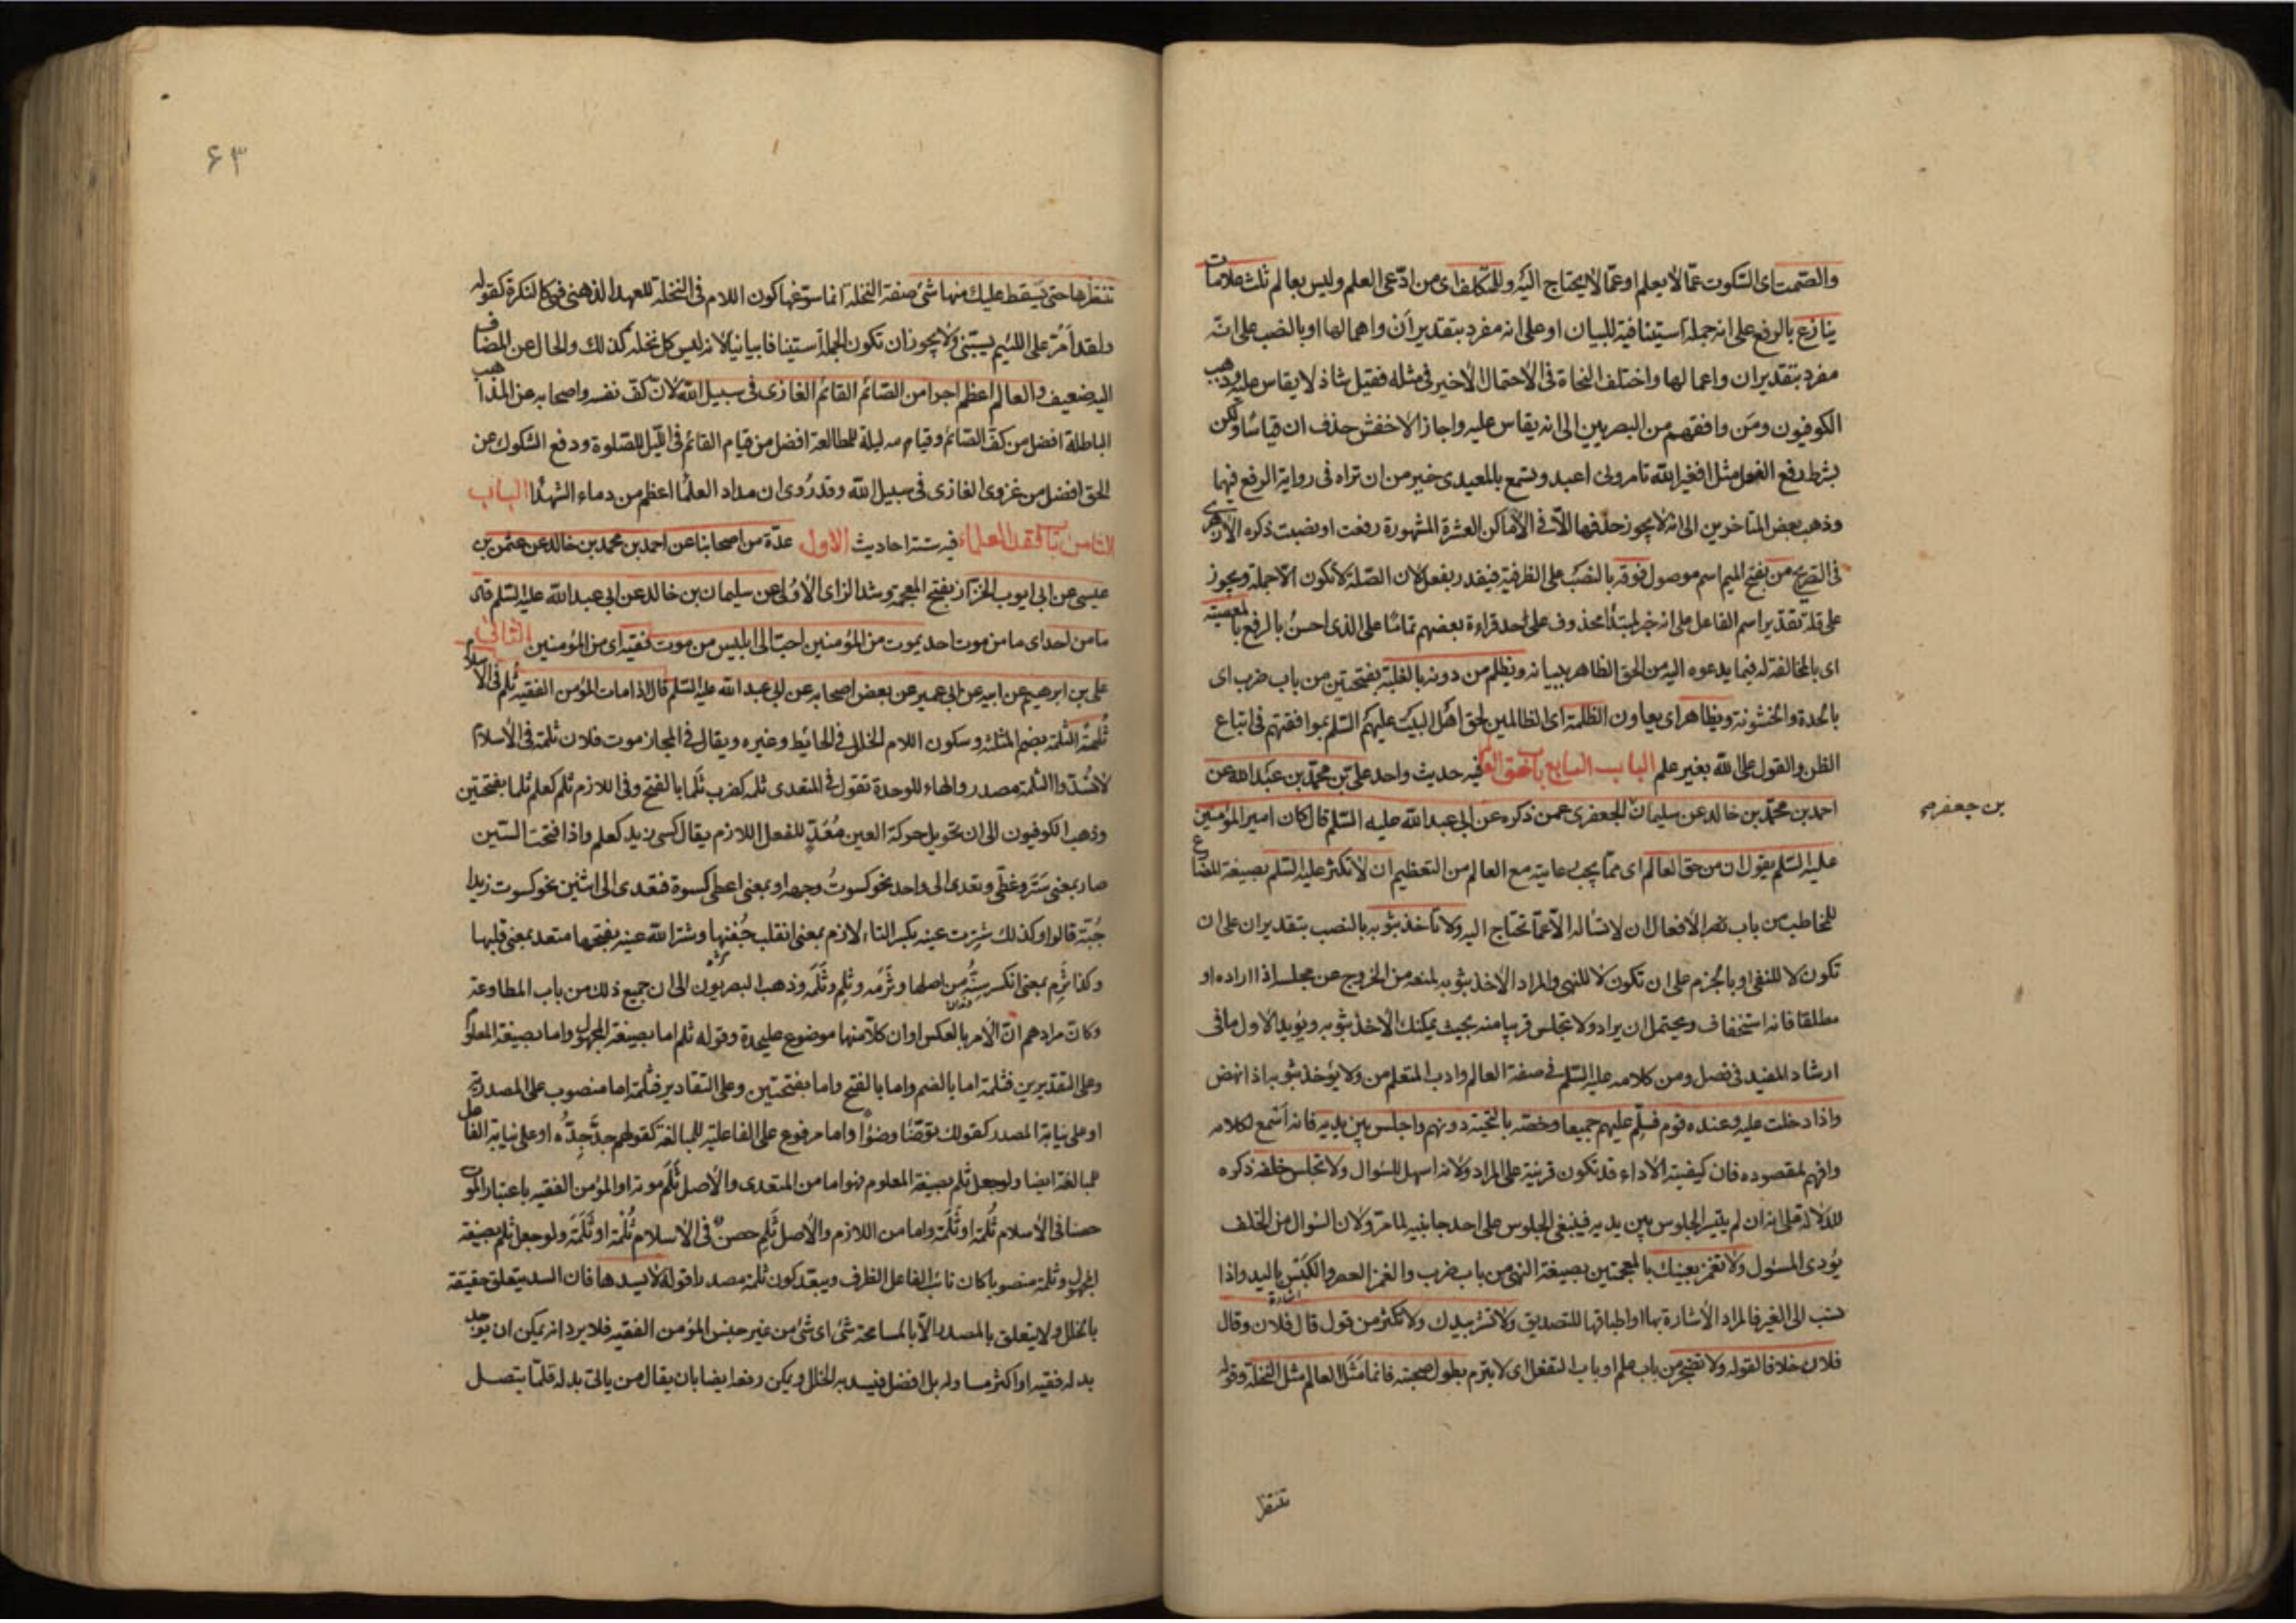 والصمت اى السكوت عما لا يعلم او عما لا يحتاج اليه وللمتكلف اى من ادعى العلم وليس بعالم ثلث علامات
ينازع بالرفع على انه جملة استينافية للبيان او على انه مفرد بتقدير أن واهمالها او بالنصب على انه
مفرد بتقدير ان واعمالها واختلف النحاة فى الاحتمال الاخير فى مثله فقيل شاذ لا يقاس عليه وذهب
الكوفيون ومن وافقهم من البصريين الى انه يقاس عليه واجاز الاخفش حذف ان قياسا ولكن
بشرط رفع الفعل مثل افغير الله تامرونى اعبد وتسمع بالمعيدى خير من ان تراه فى رواية الرفع فيهما
وذهب بعض المتاخرين الى انه لا يجوز حذفها الا فى الاماكن العشرة المشهورة رفعت او نصبت ذكره الازهرى
فى التصريح من بفتح الميم اسم موصول فوقه بالنصب على الظرفية فيقدر بفعل لان الصلة لا تكون الا جملة ويجوز
على قلة تقدير اسم الفاعل على انه خبر لمبتدا محذوف على حد قراءة بعضهم تماما على الذى احسن بالرفع بالمعصيته
اى بالمخالفة له فيما يدعوه اليه من الحق الظاهر ببيانه ويظلم من دونه بالغلبة بفتحتين من باب ضرب اى
بالحدة والخشونة ويظاهر اى يعاون الظلمة اى الظالمين لحق اهل البيت عليهم السلم بموافقتهم فى اتباع
الظن والقول على الله بغير علم الباب السابع باب حق العالم فيه حديث واحد على بن محمد بن عبد الله عن
احمد بن محمد بن خالد عن سليمان الجعفرى عمن ذكره عن ابى عبد الله عليه السلم قال كان امير المؤمنين
بن جعفر صح
عليه السلم يقول ان من حق العالم اى مما يجب رعايته مع العالم من التعظيم ان لا تكثر عليه السلم بصيغة المضارع
للمخاطب من باب الافعال ان لا تساله الا عما تحتاج اليه ولا تاخذ بثوبه بالنصب بتقدير ان على ان
تكون لا للنفى او بالجزم على ان تكون لا للنهى والمراد الاخذ بثوبه لمنعه من الخروج عن مجلسه اذا اراده او
مطلقا فانه استخفاف ويحتمل ان يراد ولا تجلس قريبا منه بحيث يمكنك الاخذ بثوبه ويؤيد الاول ما فى
ارشاد المفيد فى فصل ومن كلامه عليه السلم فى صفة العالم وادب المتعلم من ولا يؤخذ بثوبه اذا نهض
واذا دخلت عليه وعنده قوم فسلم عليهم جميعا وخصه بالتحية دونهم واجلس بين يديه فانه اسمع لكلامه
وافهم لمقصوده فان كيفية الاداء قد تكون قرينة على المراد ولانه اسهل للسؤال ولا تجلس خلفه ذكره
للدلالة على انه ان لم يتيسر الجلوس بين يديه فينبغى الجلوس على احد جانبيه لما مر ولان السوال من الخلف
يؤدى المسئول ولا تغمز بعينك بالمعجمتين بصيغة النهى من باب ضرب والغمز العصر والكبس باليد واذا
نسب الى الغير فالمراد الاشارة بها او اطباقها للتصديق ولا تشر بيدك ولا تكثر من قول قال فلان وقال
فلان خلافا لقوله ولا تضجر من باب علم او باب التفعل اى لا تبرم بطول صحبته فانما مثل العالم مثل النخلة وقوله
تنتظر
۶۳
تنتظرها حتى يسقط عليك منها شئ صفة النخلة انما سوغها كون اللام فى النخلة للعهد الذهنى فهو كالنكرة كقوله
ولقد أمر على اللئيم يسبنى ولا يجوز ان تكون الجملة استينافا بيانيا لانه ليس كل نخلة كذلك والحال عن المضاف
اليه ضعيف والعالم اعظم اجرا من الصائم القائم الغازى فى سبيل الله لان كف نفسه واصحابه عن المذاهب
الباطلة افضل من كف الصائم وقيامه ليلة للمطالعة افضل من قيام القائم فى الليل للصلوة ودفع الشكوك عن
الحق افضل من غزوى الغازى فى سبيل الله وقد روى ان مداد العلما اعظم من دماء الشهدا الباب
الثامن باب فقد العلماء فيه ستة احاديث الاول عدة من اصحابنا عن احمد بن محمد بن خالد عن عثمن بن
عيسى عن ابى ايوب الخزاز بفتح المعجمة وشد الزاى الاولى عن سليمان بن خالد عن ابى عبد الله عليه السلم قال
ما من احد اى ما من موت احد يموت من المؤمنين احب الى ابليس من موت فقيه اى من المؤمنين الثانى
على بن ابرهيم عن ابيه عن ابى عمير عن بعض اصحابه عن ابى عبد الله عليه السلم قال اذا مات المؤمن الفقيه ثلم فى الاسلام
ثلمة الثلمة بضم المثلثة وسكون اللام الخلل فى الحايط وغيره ويقال فى المجاز موت فلان ثلمة فى الاسلام
لا تسد والثلمة مصدر والهاء للوحدة تقول فى المتعدى ثلمه كضرب ثلما بالفتح وفى اللازم ثلم كعلم ثلما بفتحتين
وذهب الكوفيون الى ان تحويل حركة العين معد للفعل اللازم يقال كسى زيد كعلم واذا فتحت السين
صار بمعنى ستر وغطى وتعدى الى واحد نحو كسوت وجهه او بمعنى اعطى كسوة فتعدى الى اثنين نحو كسوت زيدا
جبة قالوا وكذلك شترت عينه بكسر التاء لازم بمعنى انقلب جفنها وشتر الله عينه بفتحها متعد بمعنى قلبها
وكذا ثرم بمعنى انكسر سنه من اصلها وثرمه وثلم وثلمه وذهب البصريون الى ان جميع ذلك من باب المطاوعة
وكان مرادهم ان الامر بالعكس او ان كلا منها موضوع عليحدة وقوله ثلم اما بصيغة المجهول واما بصيغة المعلوم
وعلى التقديرين فثلمة اما بالضم واما بالفتح واما بفتحتين وعلى التقادير فثلمة اما منصوب على المصدرية
او على نيابة المصدر كقولك توضأ وضوءا واما مرفوع على الفاعلية للمبالغة كقولهم جد جده او على نيابة الفاعل
للمبالغة ايضا ولو جعل ثلم بصيغة المعلوم فهو اما من المتعدى والاصل ثلم موته او المؤمن الفقيه باعتبار الموت
حصنا فى الاسلام ثلمة او ثلمة واما من اللازم والاصل ثلم حصن فى الاسلام ثلمة او ثلمة ولو جعل ثلم بصيغة
المجهول وثلمة منصوبا كان نائب الفاعل الظرف ويبعد كون ثلمة مصدرا قوله لا يسدها فان السد يتعلق حقيقة
بالخلل ولا يتعلق بالمصدر الا بالمسامحة شئ اى شئ من غير جنس المؤمن الفقيه فلا يرد انه يمكن ان يوجد
بدله فقيه او اكثر مساو له بل افضل فيسد به الخلل ويمكن دفعه ايضا بان يقال من ياتى بدله قلما يتصل